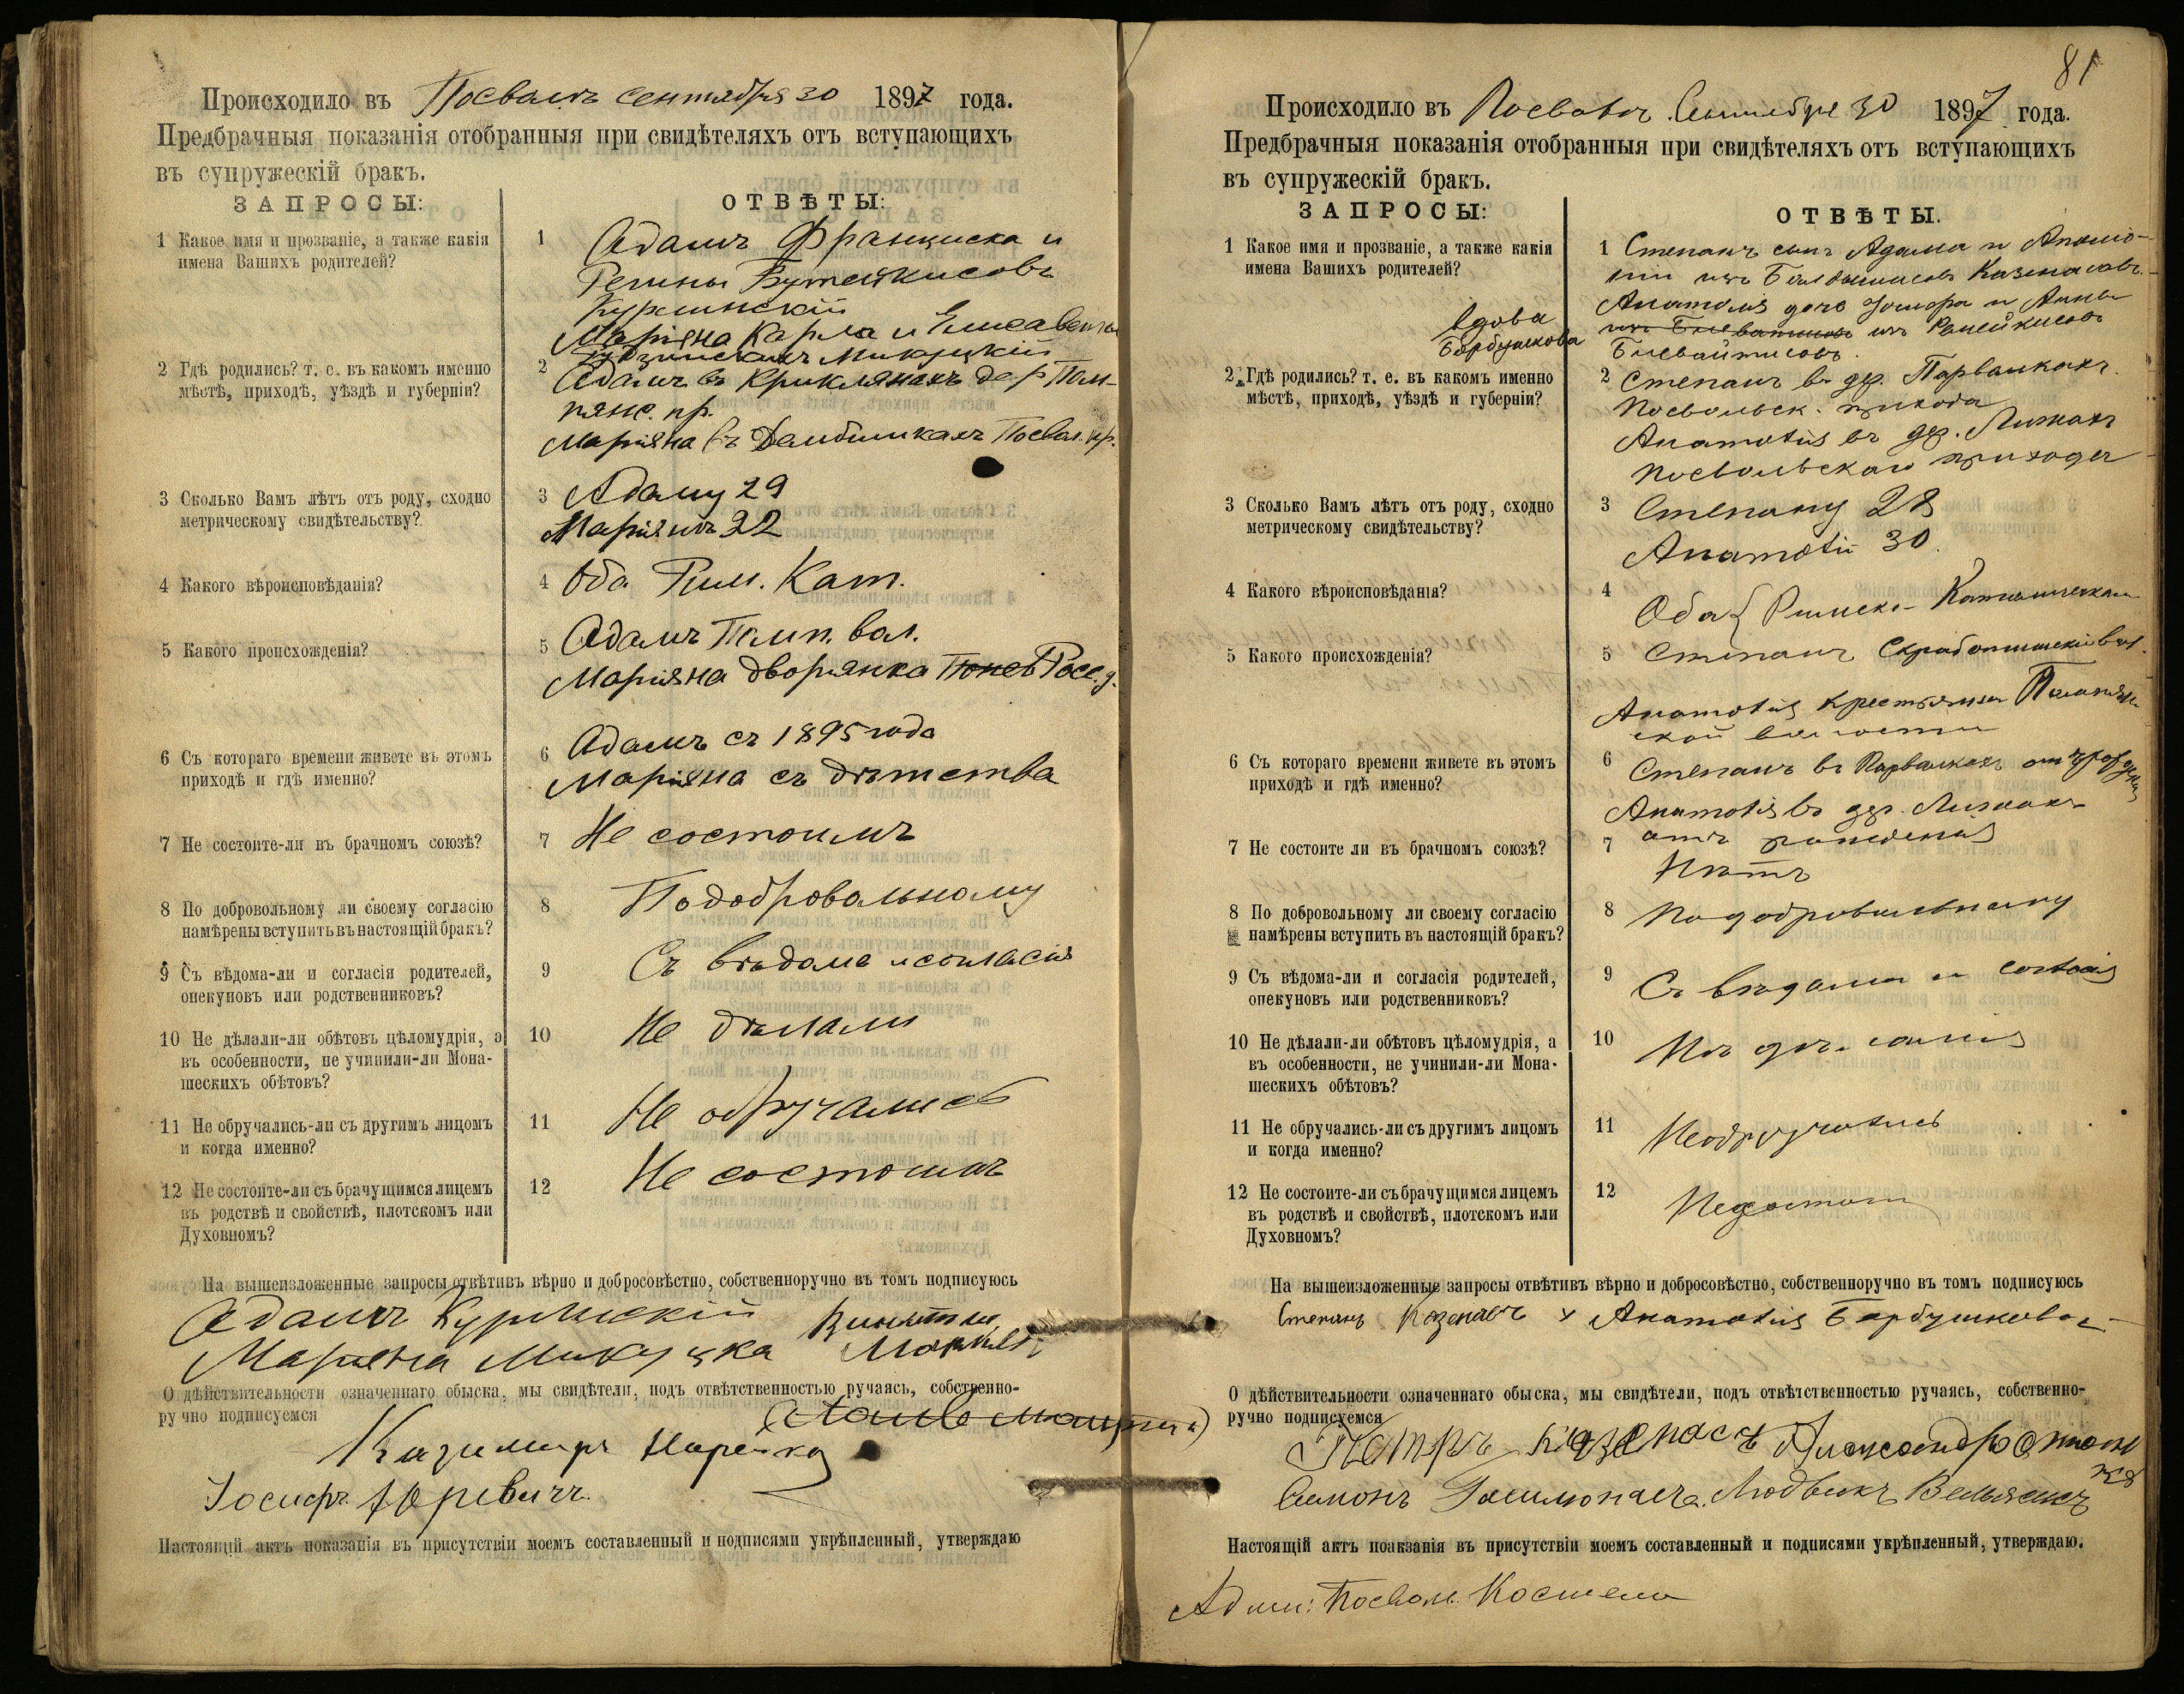 Происходило въ Посваль сентября 30 1897 года.
Предбрачныя показанія отобранныя при свидѣтеляхъ отъ вступающихъ
въ супружескій бракъ.
ЗАПРОСЫ:
ОТВѢТЫ:
1 Какое имя и прозваніе, а также какія
имена Вашихъ родителей?
1 Адамъ Франциска и
Регины Бутейкисовъ
Курминскій
Маріяна Карла и Елисаветы
Микуцкій
2 Гдѣ родились? т. е. въ какомъ именно
мѣстѣ, приходѣ, уѣздѣ и губерніи?
2 Адамъ въ Криклянахъ дер Пом-
пянс. пр.
Маріяна въ Дамбишкахъ Посвол. пр.
3 Сколько Вамъ лѣтъ отъ роду, сходно
метрическому свидѣтельству?
3 Адаму 29
Маріянѣ 22
4 Какого вѣроисповѣданія?
4 Оба Рим. Кат.
5 Какого происхожденія?
5 Адамъ Помп. вол.
Маріяна дворянка
6 Съ котораго времени живете въ этомъ
приходѣ и гдѣ именно?
6 Адамъ съ 1895 года
Маріяна съ дѣтства
7 Не состоите-ли въ брачномъ союзѣ?
7 Не состоимъ
8 По добровольному ли своему согласію
намѣрены вступить въ настоящій бракъ?
8 По добровольному
9 Съ вѣдома-ли и согласія родителей,
опекуновъ или родственниковъ?
9 Съ вѣдома и согласія
10 Не дѣлали-ли обѣтовъ цѣломудрія, а
въ особенности, не учинили-ли Мона-
шескихъ обѣтовъ?
10 Не дѣлали
11 Не обручались-ли съ другимъ лицомъ
и когда именно?
11 Не обручались
12 Не состоите-ли съ брачущимся лицемъ
въ родствѣ и свойствѣ, плотскомъ или
Духовномъ?
12 Не состоимъ
На вышеизложенные запросы отвѣтивъ вѣрно и добросовѣстно, собственноручно въ томъ подписуюсь
Адамъ Курминскій
Маріяна Микуцка
О дѣйствительности означеннаго обыска, мы свидѣтели, подъ отвѣтственностью ручаясь, собственно-
ручно подписуемся
Казимиръ Нарейко
Іосифъ Юревичъ
Настоящій актъ показанія въ присутствіи моемъ составленный и подписями укрѣпленный, утверждаю
81
Происходило въ Посволь Сентября 30 1897 года.
Предбрачныя показанія отобранныя при свидѣтеляхъ отъ вступающихъ
въ супружескій бракъ.
ЗАПРОСЫ:
ОТВѢТЫ.
1 Какое имя и прозваніе, а также какія
имена Вашихъ родителей?
вдова
Барбушкова
1 Степанъ сынъ Адама и Аполо-
ніи изъ Казенасовъ
Анатолія дочь и Анны
изъ Рамейкисовъ
2 Гдѣ родились? т. е. въ какомъ именно
мѣстѣ, приходѣ, уѣздѣ и губерніи?
2 Степанъ въ др. Парвалкахъ
Посвольск. прихода
Анатолія въ др.
Посвольскаго прихода
3 Сколько Вамъ лѣтъ отъ роду, сходно
метрическому свидѣтельству?
3 Степану 28
Анатоліи 30
4 Какого вѣроисповѣданія?
4 Оба { Римско-Католическаго
5 Какого происхожденія?
5 Степанъ вол.
Анатолія крестьянка Помпян-
ской волости
6 Съ котораго времени живете въ этомъ
приходѣ и гдѣ именно?
6 Степанъ въ Парвалкахъ отъ рожденія
Анатолія въ др.
отъ рожденія
7 Не состоите ли въ брачномъ союзѣ?
7 Нѣтъ
8 По добровольному ли своему согласію
намѣрены вступить въ настоящій бракъ?
8 По добровольному
9 Съ вѣдома-ли и согласія родителей,
опекуновъ или родственниковъ?
9 Съ вѣдома и согласія
10 Не дѣлали-ли обѣтовъ цѣломудрія, а
въ особенности, не учинили-ли Мона-
шескихъ обѣтовъ?
10
11 Не обручались-ли съ другимъ лицомъ
и когда именно?
11 Необручались
12 Не состоите-ли съ брачущимся лицемъ
въ родствѣ и свойствѣ, плотскомъ или
Духовномъ?
12
На вышеизложенные запросы отвѣтивъ вѣрно и добросовѣстно, собственноручно въ томъ подписуюсь
Степанъ Казенасъ х Анатолія Барбушкова
О дѣйствительности означеннаго обыска, мы свидѣтели, подъ отвѣтственностью ручаясь, собственно-
ручно подписуемся
Петръ Казенасъ Александръ
Симонъ Людвикъ
Настоящій актъ поаказанія въ присутствіи моемъ составленный и подписями укрѣпленный, утверждаю.
Адми: Посвол. Костела